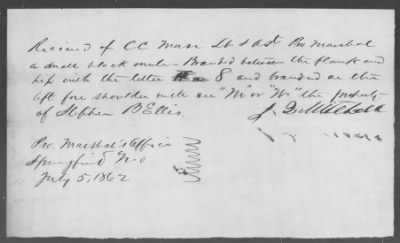 Received of CC Moss Lt & Asst Pro Marshal
a small black mule - Branded between the flank and
hip with the letter 8 and branded on the
left fore shoulder with an "M" or "W" the property
of Stephen B Ellis.
J. D. Mitchell
Pro. Marshal's Office
Springfield Mo
July 5, 1862